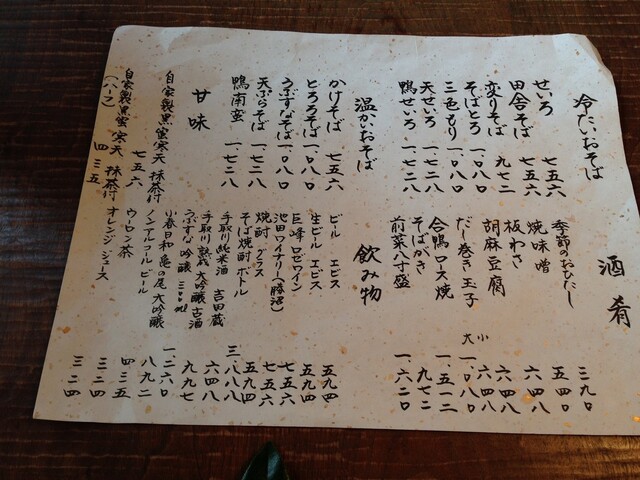 冷たいおそば
せいろ 七五六
田舎そば 七五六
変りそば 九七二
そばとろ 一、〇八〇
三色もり 一、〇八〇
天せいろ 一、七二八
鴨せいろ 一、七二八
温かいおそば
かけそば 七五六
とろろそば 一、〇八〇
うぶすなそば 一、〇八〇
天ぷらそば 一、七二八
鴨南蛮 一、七二八
甘味
自家製黒蜜寒天 抹茶付 七五六
自家製黒蜜寒天 抹茶付
(ハーフ) 四三五
酒肴
季節のおひたし 三九〇
焼味噌 五四〇
板わさ 六四八
胡麻豆腐 六四八
だし巻き玉子 小 六四八
大 一、〇八〇
合鴨ロース焼 一、五一二
そばがき 九七二
前菜八寸盛 一、六二〇
飲み物
ビール ヱビス 五九四
生ビール ヱビス 五九四
巨峰ロゼワイン 七五六
池田ワイナリー(勝沼) 七五六
焼酎 グラス 五九四
そば焼酎 ボトル 三、八八八
手取川 純米酒 吉田蔵 六四八
手取川 熟成大吟醸古酒 九九七
うぶすな 吟醸 300ml 一、二六〇
小春日和 亀の尾 大吟醸 八九二
ノンアルコールビール 四三五
ウーロン茶 三二四
オレンジジュース 三二四